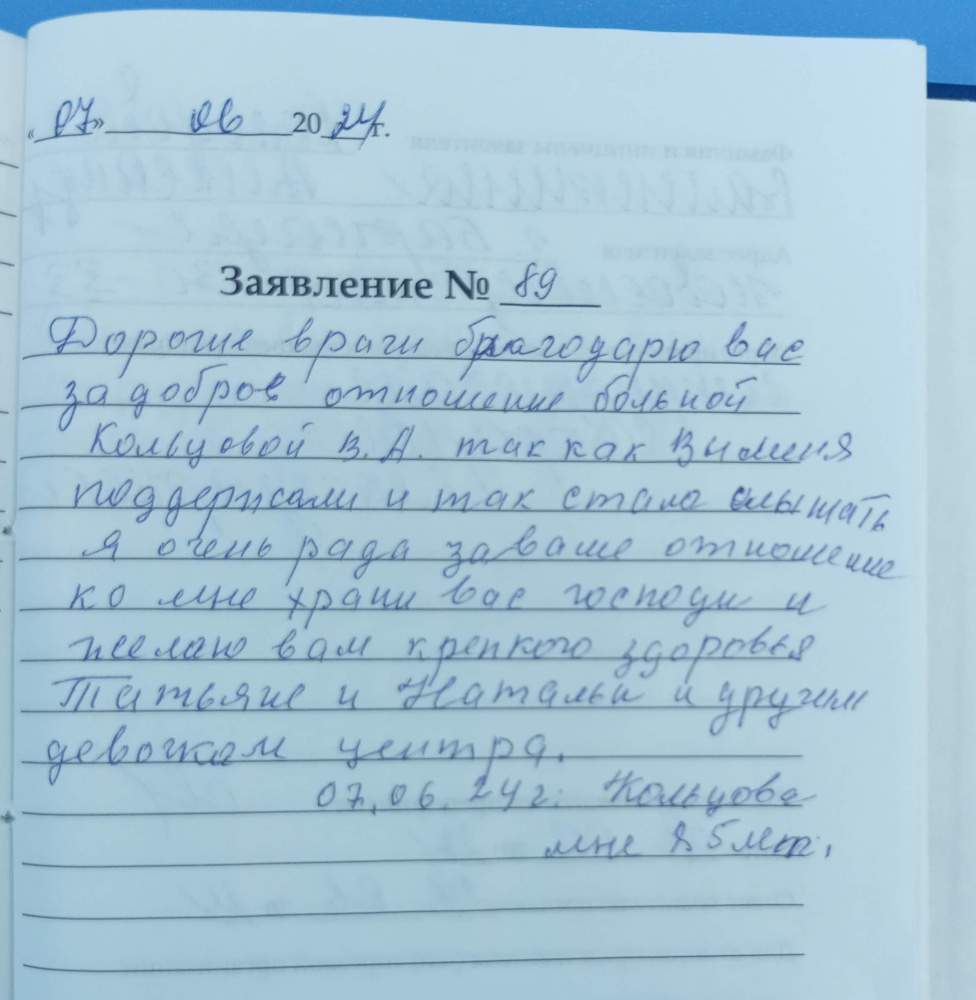 «07» 06 2024г.
Заявление № 89
Дорогие врачи благодарю вас
за доброе отношение больной
Кольцовой В.А. так как Вы меня
поддержали и так стала слышать
я очень рада за ваше отношение
ко мне храни вас господи и
желаю вам крепкого здоровья
Татьяне и Натальи и другим
девочкам центра.
07.06.24г. Кольцова
мне 85 лет.